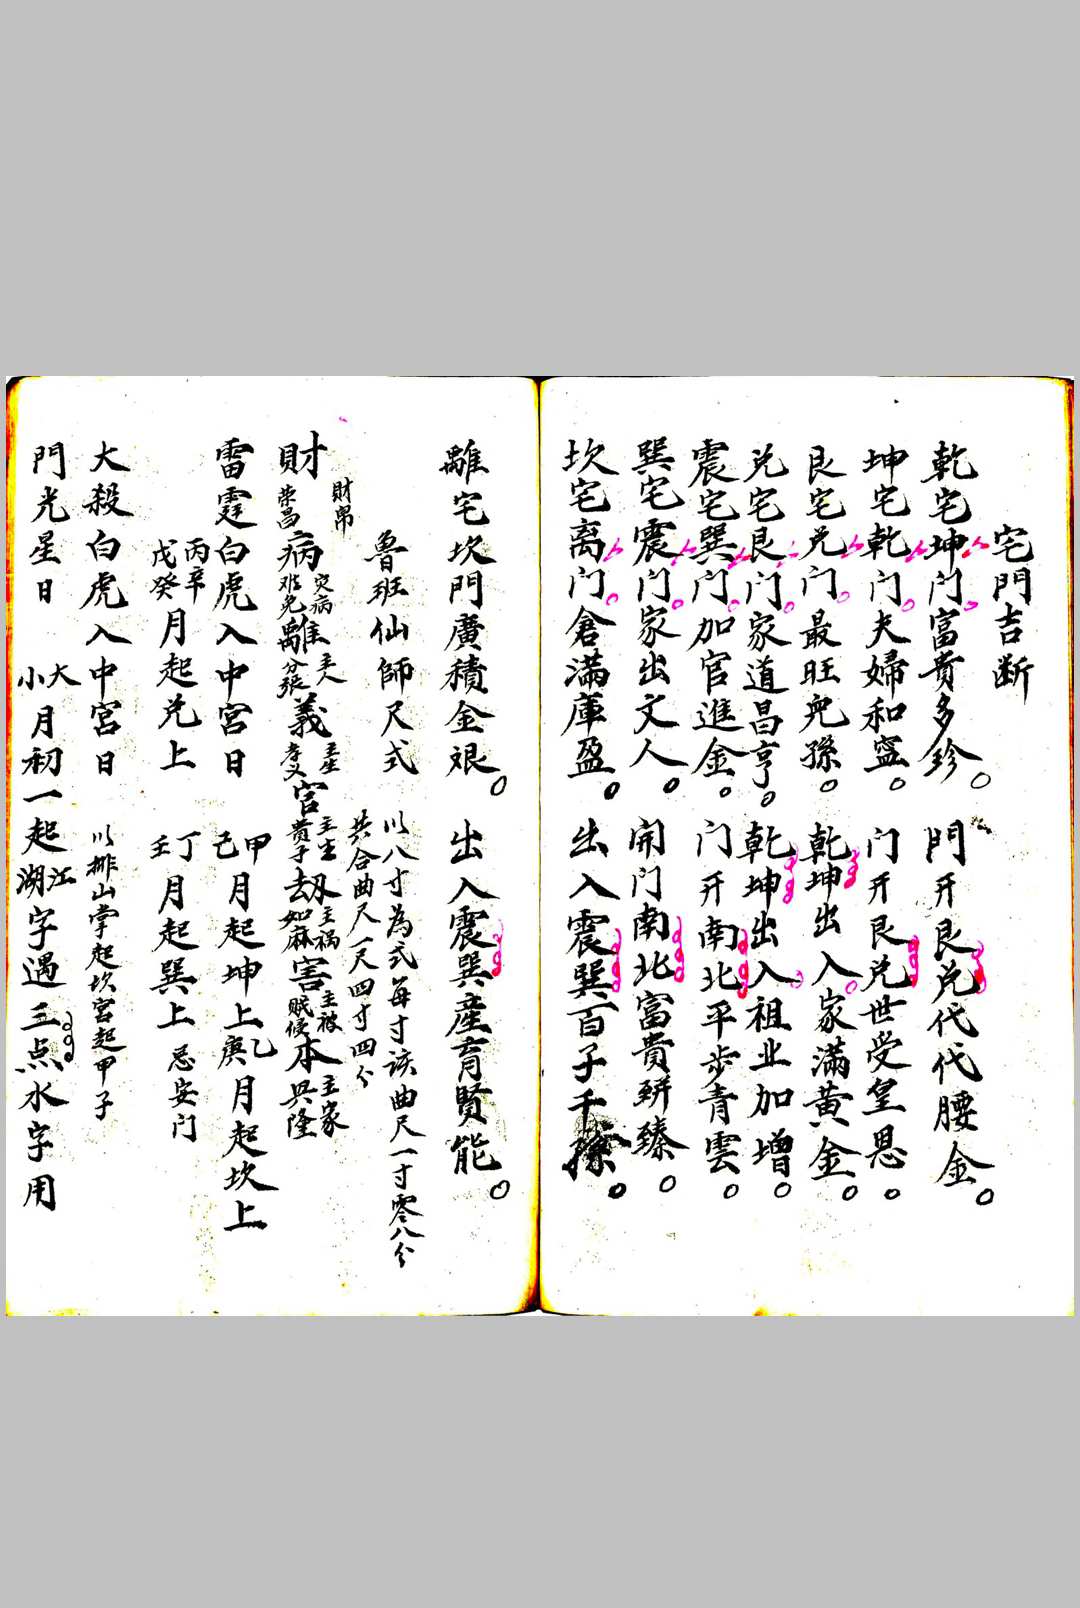 宅門吉断
乾宅坤门富貴多珍。門开艮兑代代腰金。
坤宅乾门夫婦和寧。门开艮兑世受皇恩。
艮宅兑门最旺児孫。乾坤出入家滿黃金。
兑宅艮门家道昌亨。乾坤出入祖业加增。
震宅巽门加官進金。门开南北平步青雲。
巽宅震门家出文人。開门南北富貴駢臻。
坎宅离门倉滿庫盈。出入震巽百子千孫。
離宅坎門廣積金艰。出入震巽産育賢能。
魯班仙師尺式 以八寸為式每寸该曲尺一寸零八分
共合曲尺一尺四寸四分
財 財帛荣昌 病 灾病难免 離 主人分張 義 主産孝义 官 主生贵子 刼 主祸如麻 害 主被眂侵 本 主家興隆
雷霆白虎入中宮日 甲己月起坤上 乙庚月起坎上
丙辛戊癸月起兑上 丁壬月起巽上 忌安门
大殺白虎入中宮日 以排山掌起坎宮起甲子
門光星日 大小月初一起江湖字遇三点水字用